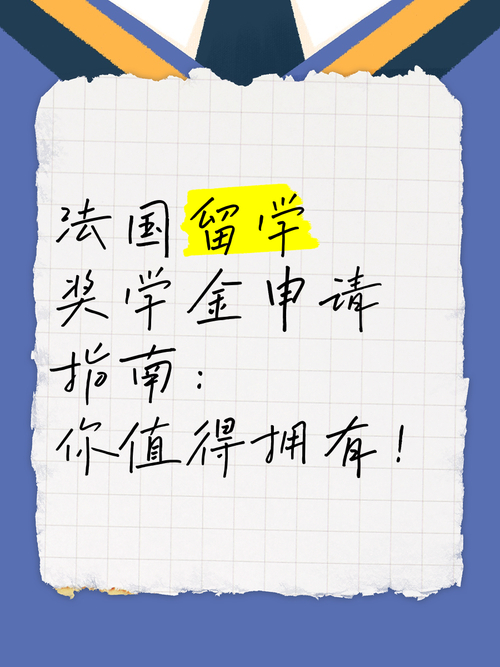 法国留学
奖学金申请
指南：
你值得拥有！